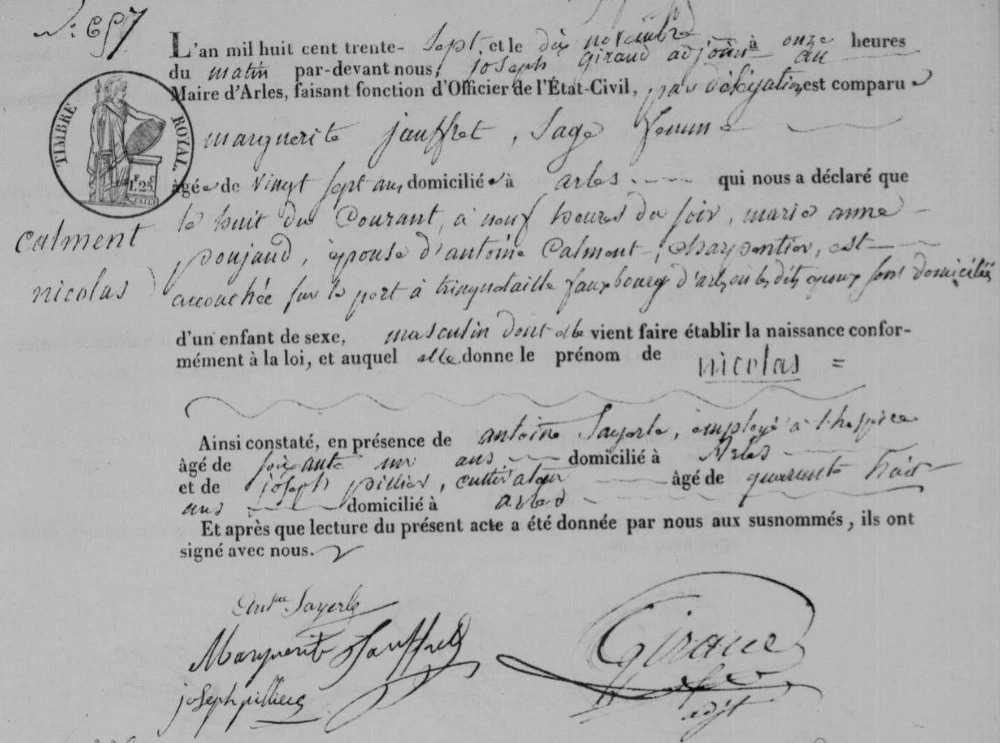 N.º 697
L'an mil huit cent trente- Sept, et le dix novembre à onze heures
du matin par-devant nous, joseph Giraud adjoint au
Maire d'Arles, faisant fonction d'Officier de l'État-Civil, par délégation est comparue
TIMBRE ROYAL
marguerite jauffret, Sage femme
âgée de vingt sept ans domiciliée à arles qui nous a déclaré que
le huit du Courant, à neuf heures du soir, marie anne
calment
poujaud, épouse d'antoine Calment, charpentier, est
nicolas
accouchée sur le port à trinquetaille fauxbourg d'arles ou les dits époux sont domiciliés
d'un enfant de sexe, masculin dont elle vient faire établir la naissance confor-
mément à la loi, et auquel elle donne le prénom de
nicolas =
Ainsi constaté, en présence de antoine Sayerle, employé à l'hospice
âgé de soixante un ans domicilié à Arles
et de joseph pillier, cultivateur âgé de quarante trois
ans domicilié à arles
Et après que lecture du présent acte a été donnée par nous aux susnommés, ils ont
signé avec nous.
Antne Sayerle
Marguerite Jauffret
Giraud
joseph pillier
adjt